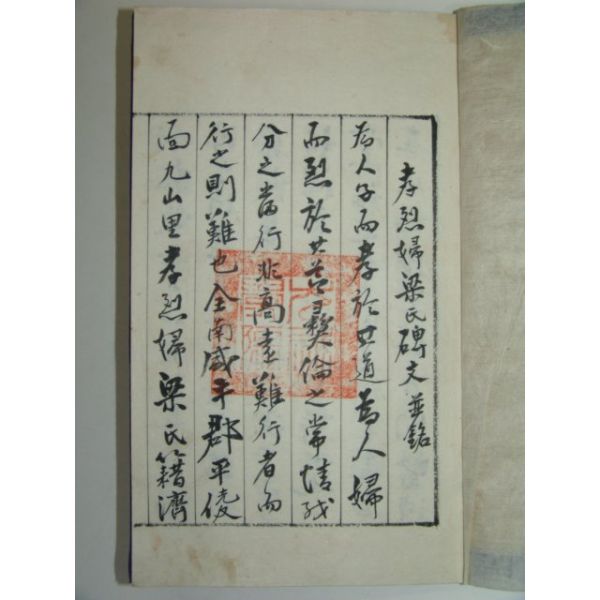 孝烈婦梁氏碑文並銘
為人子而孝於其道為人婦
而烈於其善彛倫之常情職
分之當行非高遠難行者而
行之則難也全南咸平郡平陵
面九山里孝烈婦梁氏籍濟